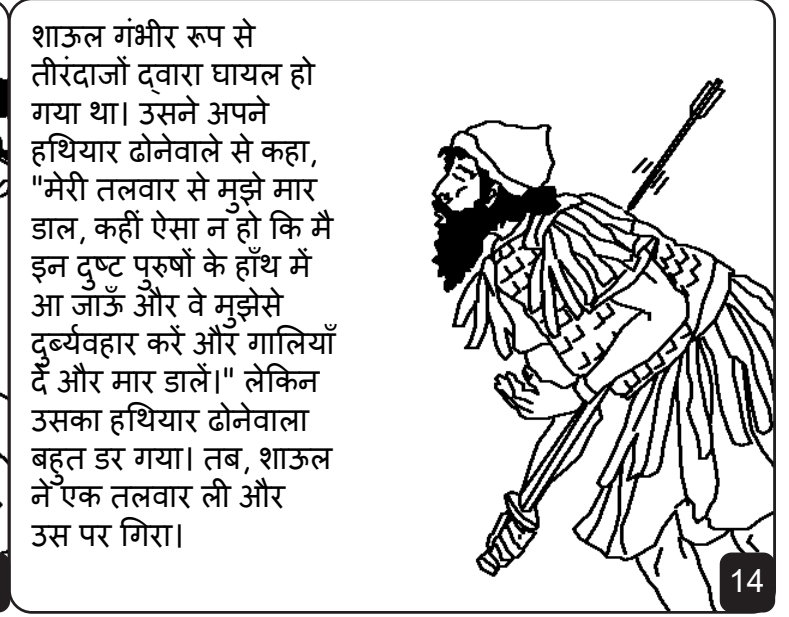 शाऊल गंभीर रूप से
तीरंदाजों द्वारा घायल हो
गया था। उसने अपने
हथियार ढोनेवाले से कहा,
"मेरी तलवार से मुझे मार
डाल, कहीं ऐसा न हो कि मै
इन दुष्ट पुरुषों के हाँथ में
आ जाऊँ और वे मुझेसे
दुर्ब्यवहार करें और गालियाँ
दें और मार डालें।" लेकिन
उसका हथियार ढोनेवाला
बहुत डर गया। तब, शाऊल
ने एक तलवार ली और
उस पर गिरा।
14